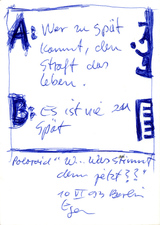 A: Wer zu Spät
kommt, den
straft das
leben.
B: Es ist nie zu
Spät
Polaroid "W... was stimmt
denn jetzt??"
10 VI 93 Berlin